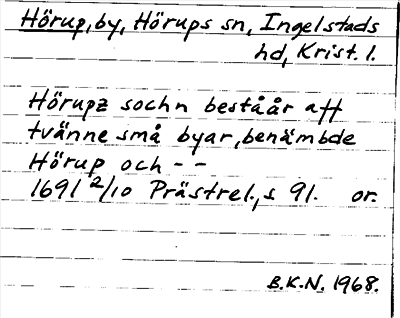 Hörup, by, Hörups sn, Ingelstads
hd, Krist. l.
Hörupz sochn beståår aff
tvänne små byar, benämbde
Hörup och - -
1691 2/10 Prästrel., s 91. or.
B.K.N. 1968.